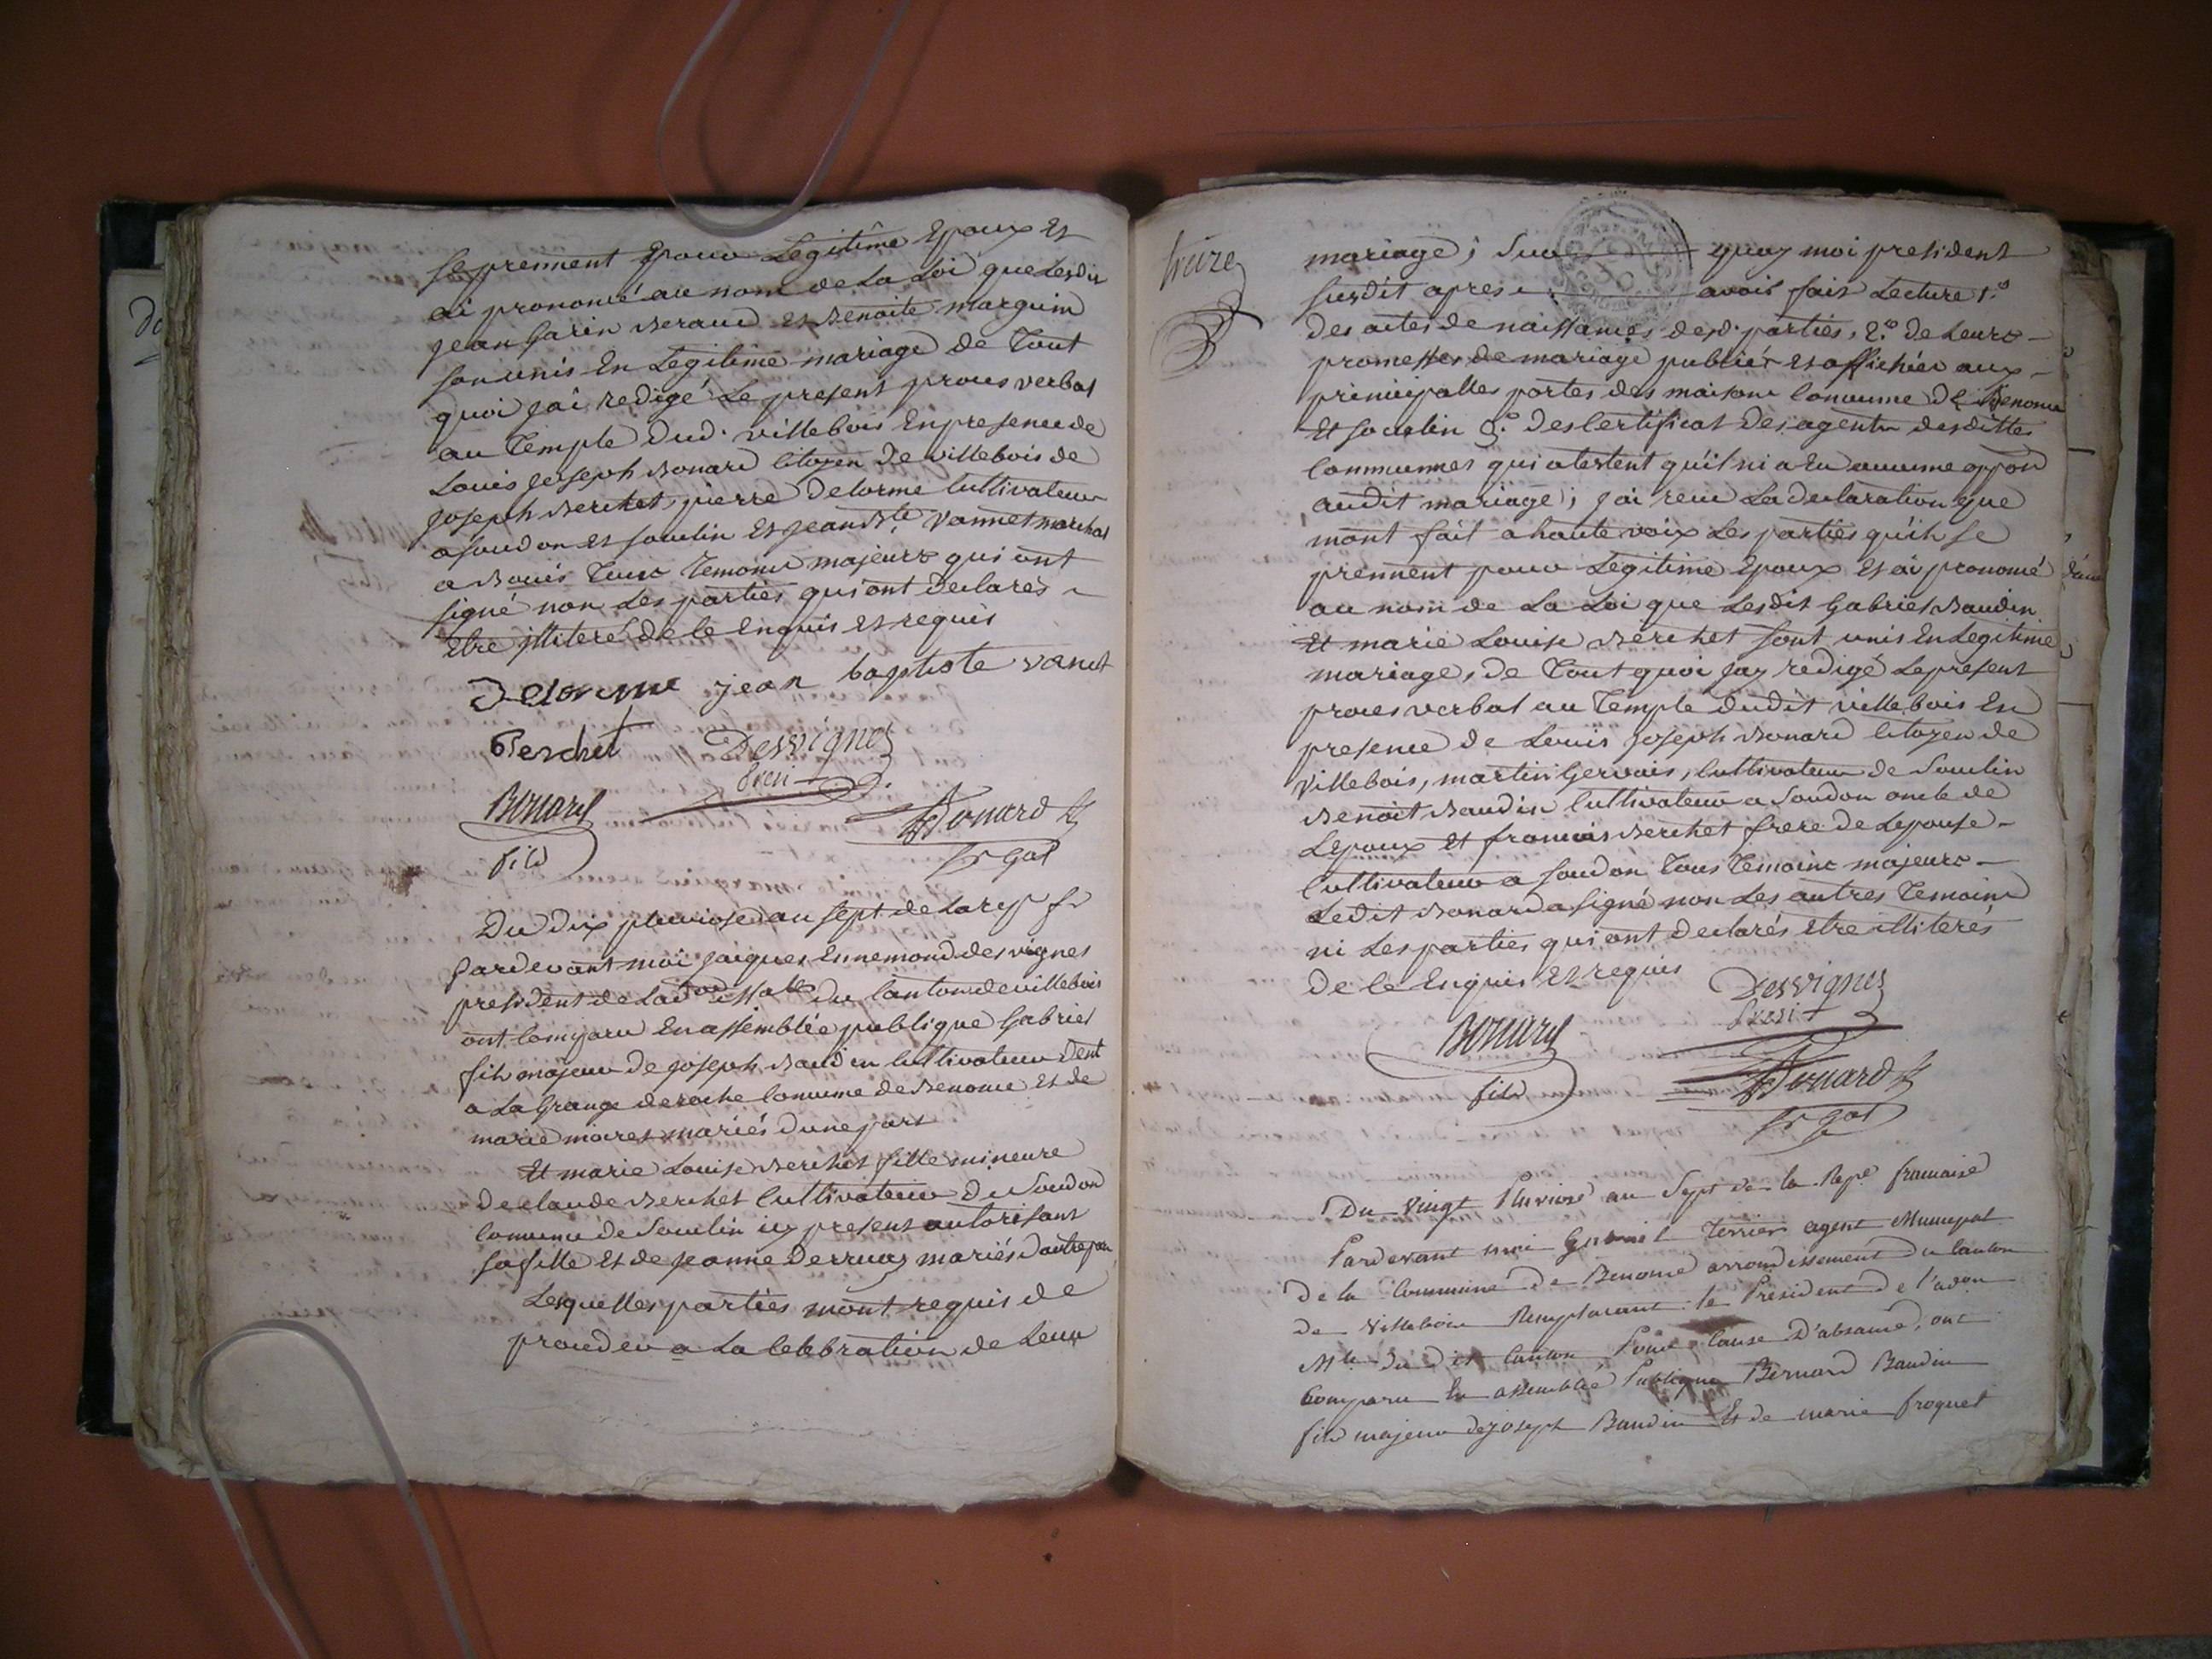 se prennent pour Legitime Epoux Et
ai prononcé au nom de La Loi que Lesdits
jean garin Beraud et Benoite marquin
son unis En Legitime mariage de Tout
quoi jai redigé Le present proces verbal
au Temple dud. villebois En presence de
Louis joseph Bonard Citoyen de villebois de
joseph Berchet, pierre Delorme Cultivateur
a soudon et soulin et jean Bte vannet marchal
a Bouis Tous Temoins majeurs qui ont
signé non Les parties qui ont Declarés
Etre illiteré de le Enquis et requis
Delorme jean baptiste vanet
Berchet Desvignes
presi
Bonard Bonard
fils sr gal
Du Dix pluviose an sept de La rep fr
pardevant moi jaiques Ennemond desvignes
president de Ladon du Canton de villebois
ont Comparu En assemblée publique Gabriel
fils majeur de joseph Baudin Cultivateur Dent
a La Grange de roche Commune de Benonce Et de
marie mares mariés dune part
Et marie Louise Berchet fille mineure
de Claude Berchet Cultivateur Du Soudon
Commune de Soulin icy present autorisant
sa fille Et de jeanne Derruaz mariés dautre part
Lesquelles parties mont requis de
proceder a La Celebration de Leur
treize
mariage; Sur quoy moi president
susdit apres avoir fait Lecture 1.o
des actes de naissances desd. parties, 2.o de Leurs
promesses de mariage publiér et affichée aux
principalles portes des maisons Commune De Benonce
Et soulin 3.o des Certificat des agents desdittes
Communnes qui atestent qu'il ni a Eu aucune oppon
audit mariage; jai recu La declaration que
mont fait a haute voix Les parties qu'ils se
prennent pour Legitime Epoux Et ai prononcé
au nom de La Loi que Lesdit Gabriel Baudin
Et marie Louise Berchet sont unis En Legitime
mariage, de Tout quoi jay redigé Le present
proces verbal au Temple dudit villebois En
presence de Louis joseph Bonard Citoyen de
villebois, martin Gervais, Cultivateur de Soulin
Benoit Baudin Cultivateur a Soudon oncle de
Lepoux Et francois Berchet frere de Lepouse
Cultivateur a soudon Tous Temoins majeurs
Ledit Bonard a signé non Les autres Temoins
ni Les parties qui ont declarés Etre illiterés
de le Enquis Et requis Desvignes
presi
Bonard Bonard
fils sr gal
Du Vingt Pluviose an Sept de la Repe francaise
Pardevant moi Gabriel Terrier agent Municipal
De la Commune de Benonce arrondissement du Canton
de Villebois Remplacant le President de l'adon
Mle du dit Canton Pour Cause D'absance, ont
Comparu En assemblée Publique Bernard Baudin
fils majeur de joseph Baudin Et de marie froquet